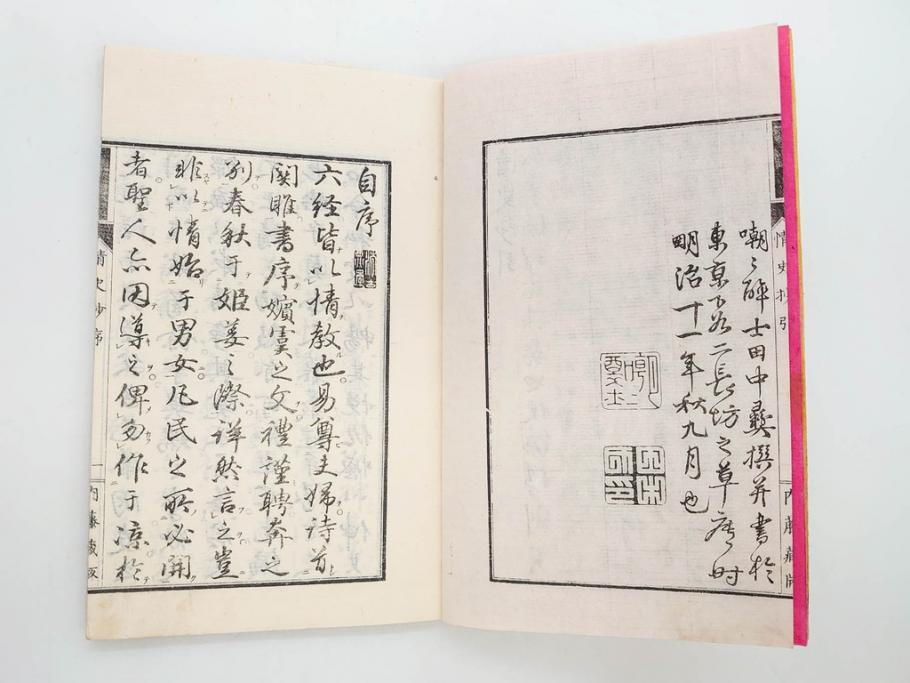 情史抄引
内藤蔵版
嘲〻酔士田中彝撰并書於
東京下谷二長坊之草廬時
明治十一年秋九月也
自序
六経皆以情教也易尊夫婦詩首
関雎書序嬪虞之文禮謹聘奔之
別春秋于姫姜之際詳然言之豈
非以情始于男女凡民之所必開
者聖人亦因導之俾勿作于凉於
情史抄序
一
内藤蔵版